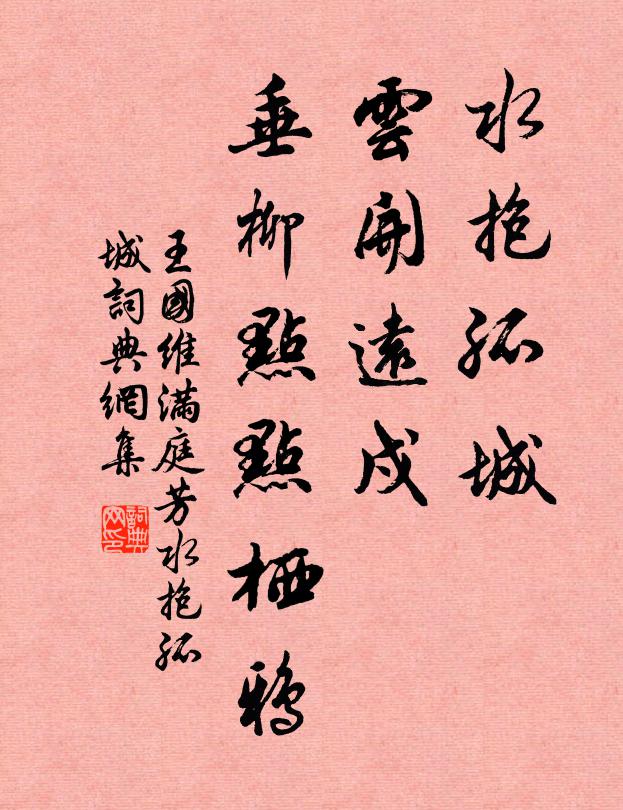 水抱孤城
雲開遠戍
垂柳點點栖鴉
王國維滿庭芳水抱孤
城詞典網集
詞典网印